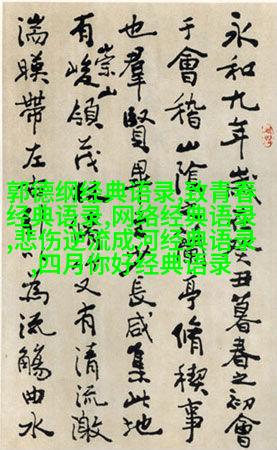 郭德纲经典语录,致青春
经典语录,网络经典语录
,悲伤逆流成河经典语录
,四月你好经典语录
永和九年歲癸丑暮春之初會
于會稽山陰蘭亭脩稧事
也羣賢畢長咸集此地
有崇山峻領茂又有清流激
湍暎帶左為流觴曲水